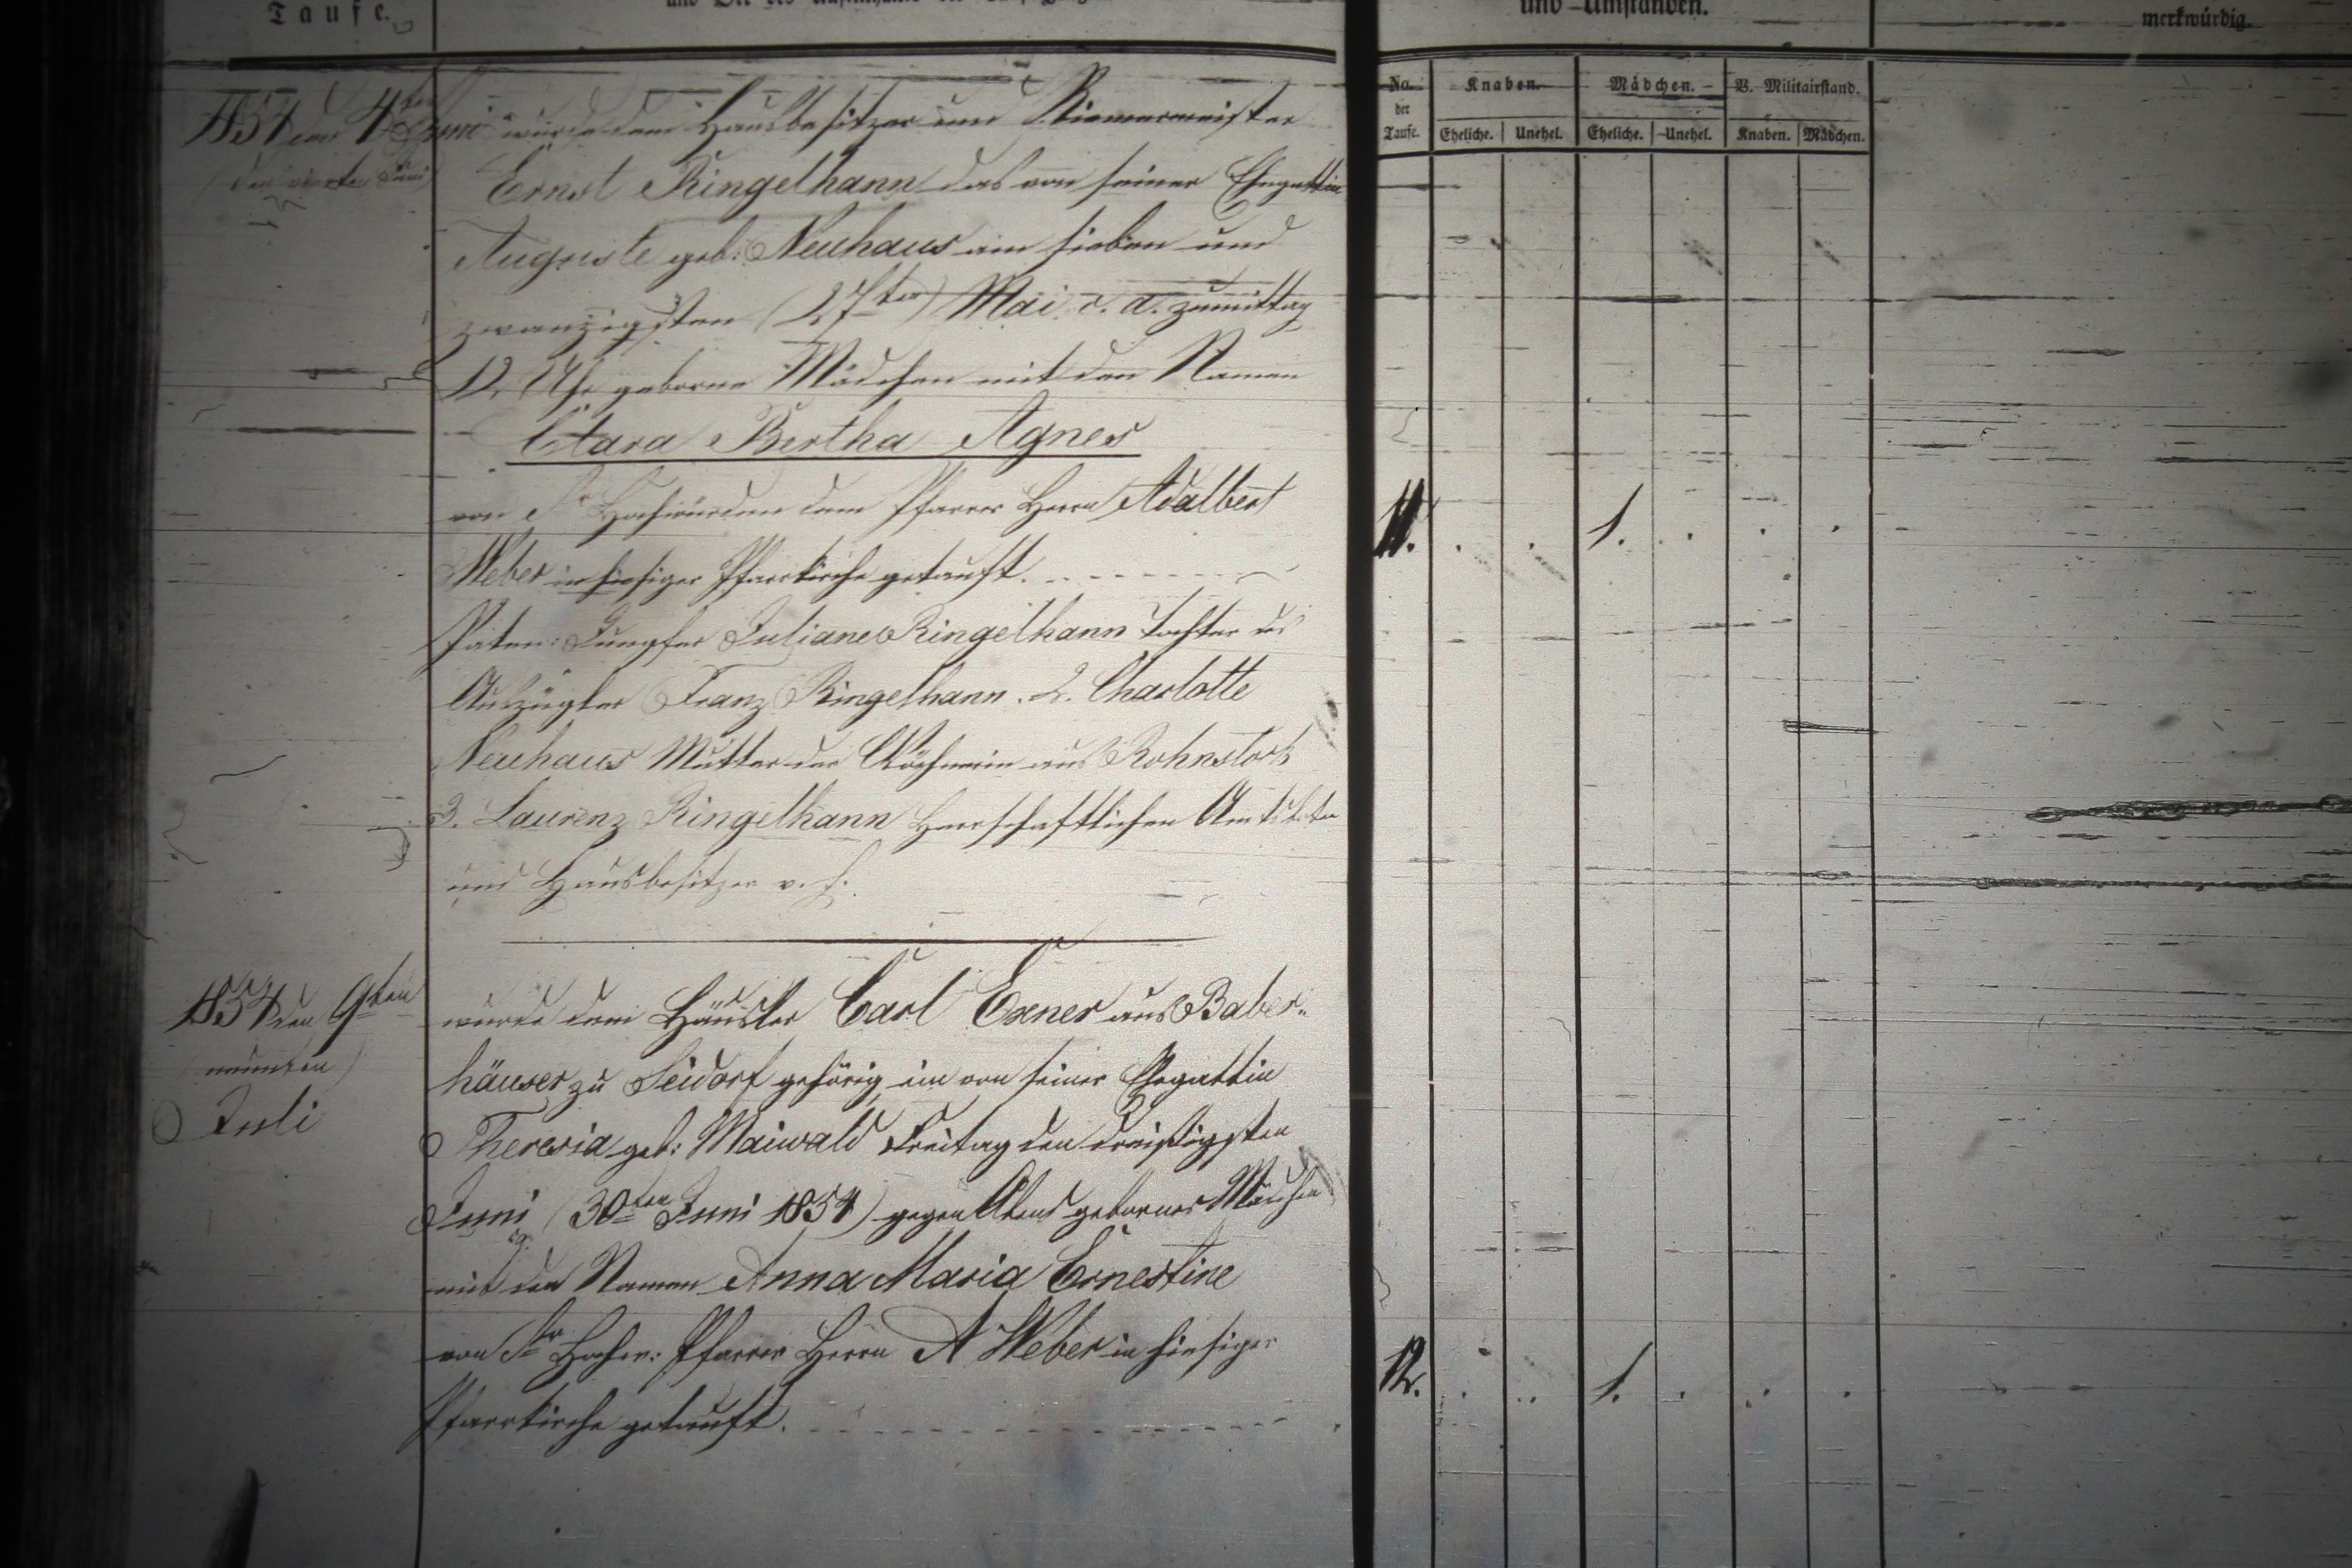 Taufe.
und Umständen.
merkwürdig.
No. der Taufe.
Knaben.
Mädchen.
V. Militairstand.
Eheliche.
Unehel.
Eheliche.
Unehel.
Knaben.
Mädchen.
1854 den 4ten Juni wurde dem Hausbesitzer und Riemermeister
(den vierten Juni)
Ernst Ringelhann das von seiner Ehegattin
Auguste geb: Neuhaus am sieben und
zwanzigsten (27ten) Mai c. a. zumittag
12 Uhr geborne Mädchen mit den Namen
Clara Bertha Agnes
von Sr Hochwürden dem Pfarrer Herrn Adalbert
11. . . 1. . . .
Weber in hiesiger Pfarrkirche getauft.
Paten: Jungfer Juliane Ringelhann Tochter des
Auszügler Franz Ringelhann. 2. Charlotte
Neuhaus Mutter der Wöchnerin aus Rohnstock
3. Laurenz Ringelhann Herrschaftlichen
und Hausbesitzer v. h.
1854 den 9ten
(neunten)
Juli
wurde dem Häusler Carl Exner aus Baber-
häuser zu Seidorf gehörig, ein von seiner Ehegattin
Theresia geb: Maiwald Freitag den dreißigsten
Juni (30ten Juni 1854) gegen Abend gebornes Mädchen
mit den Namen Anna Maria Ernestine
von Sr Hochw: Pfarrer Herrn A Weber in hiesiger
12. . . 1. . . .
Pfarrkirche getauft.